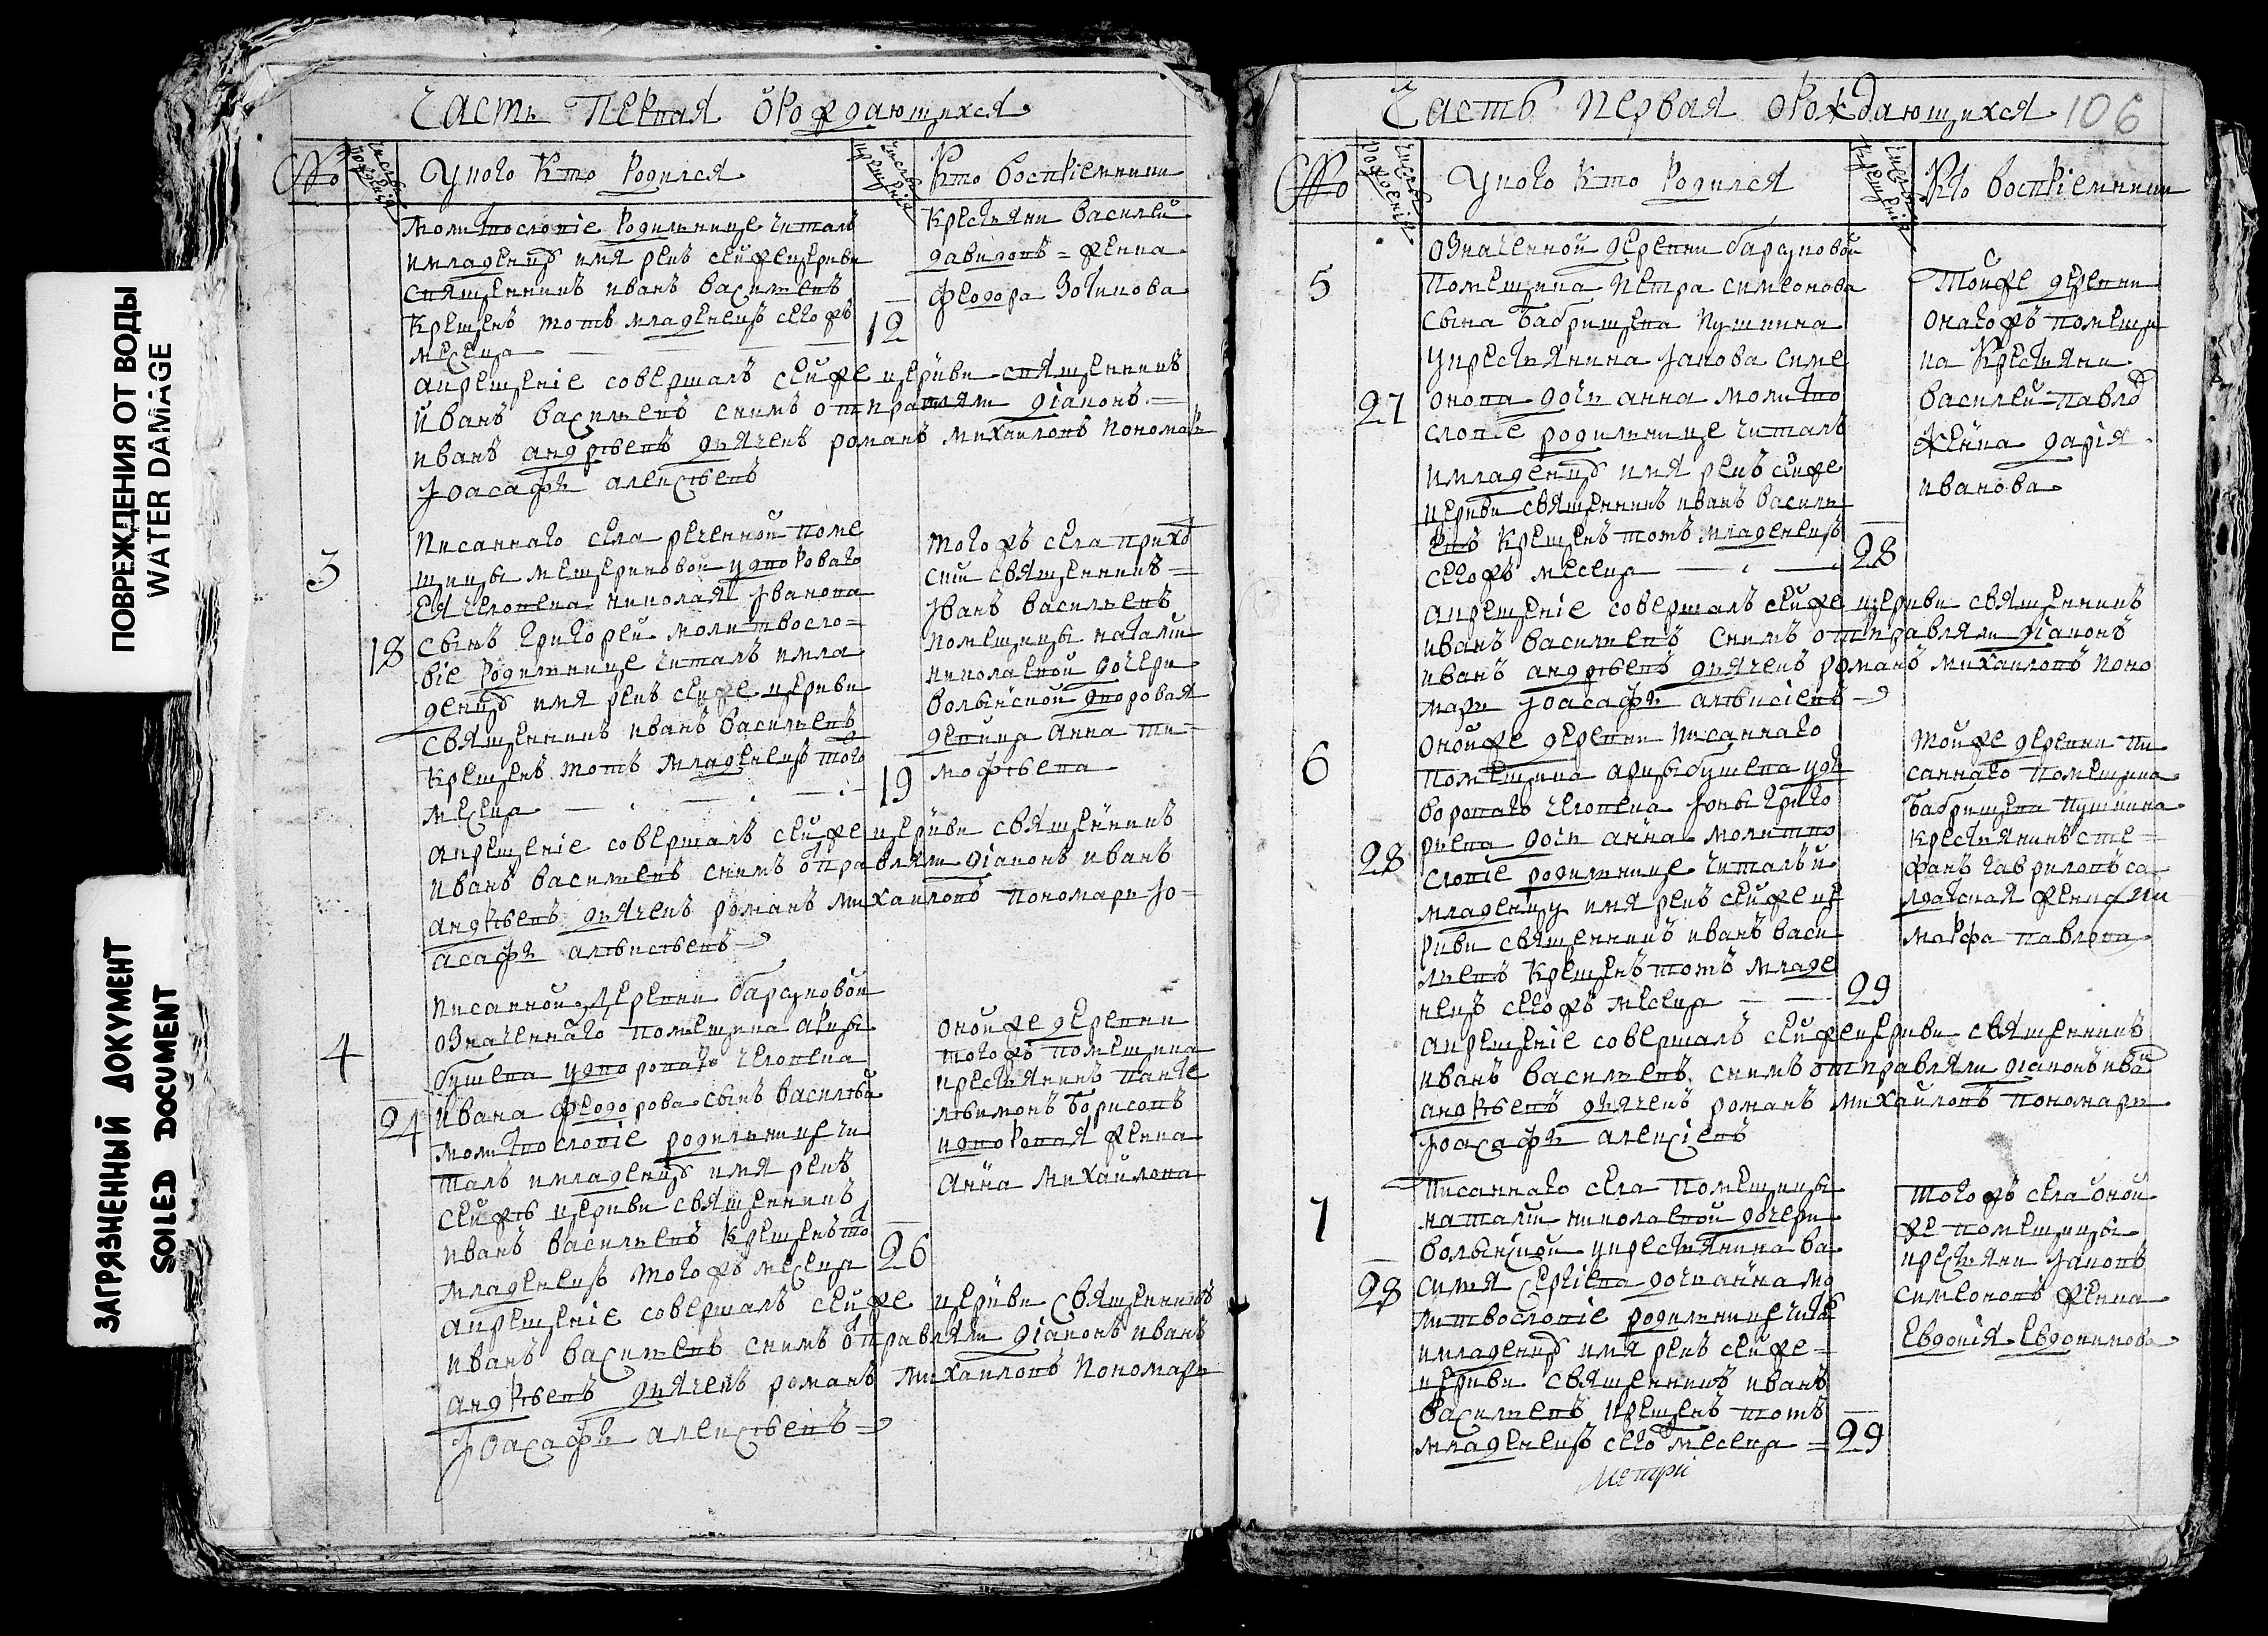 ПОВРЕЖДЕНИЯ ОТ ВОДЫ
WATER DAMAGE
ЗАГРЯЗНЕННЫЙ ДОКУМЕНТ
SOILED DOCUMENT
Часть Первая ѡрождающихся
№
число рождениѧ
Укого кто родился
число крещениѧ
Кто восприемники
молитвословіе родильнице читалъ
имладенцу имя рекъ сейже церкви
священникъ иванъ васильевъ
крещенъ тотъ младенецъ сегожъ
месеца
12
крестьянин василей
давидовъ = женка
феодора Зотикова
акрещеніе совершалъ сейже церкви священникъ
Иванъ васильевъ снимъ отправляли діаконъ =
иванъ андрѣевъ дьячекъ романъ михаиловъ пономарь
Іоасафъ алексѣевъ
3
18
Писаннаго села реченной поме
щицы мещериновой удвороваго
Ея человека николая Іванова
сынъ григорей молитвосло=
віе родильнице читалъ имла
денцу имя рекъ сейже церкви
священникъ иванъ васильевъ
крещенъ тотъ младенецъ того
месеца
19
Тогожъ села приход
ский священникъ =
Іванъ васильевъ
помещицы натальи
николаевой дочери
волынской дворовая
девица анна ти=
мофѣева
акрещеніе совершалъ сейже церкви священникъ
иванъ васильевъ снимъ отправляли діаконъ иванъ
андрѣевъ дьячекъ романъ михаиловъ пономарь Іо=
асафъ алѣксѣевъ
4
24
Писанной деревни барсуковой
означеннаго помещика арцы
бушева удворопаго человека
Ивана феодорова сынъ василѣй
молитвословіе родильнице чи
талъ имладенцу имя рекъ
сейжъ церкви священникъ
иванъ васильевъ крещенъ тотъ
младенецъ тогожъ месеца
26
Онойже деревни
тогожъ помещика
крестьянинъ панте
лѣимонъ борисовъ
идворовая женка
анна михайлова
акрещеніе совершалъ сейже церкви священникъ
иванъ васильевъ снимъ отправляли діаконъ иванъ
андрѣевъ дьячекъ романъ михаиловъ пономарь
Іоасафъ алексѣевъ
Часть первая ѡрождающихся
106
№
число рождениѧ
Укого кто родился
число крещениѧ
Кто восприемники
5
27
означенной деревни барсуковой
помещика петра симеонова
сына бабрищева пушкина
укрестьянина Іакова симе
онова дочь анна молитво
словіе родильнице читалъ
имладенцу имя рекъ сейже
церкви священникъ иванъ василь
евъ крещенъ тотъ младенецъ
сегожъ месеца
28
Тойже деревни
онагожъ помещи
ка крестьянин
василей павлов
женка дарія
иванова
акрещеніе совершалъ сейже церкви священникъ
иванъ васильевъ снимъ отправляли діаконъ
иванъ андрѣевъ дьячекъ романъ михаиловъ поно
марь Іоасафъ алѣксіевъ
6
28
Онойже деревни писаннаго
помещика арцыбушева удъ
воропаго человека Іоны григо
рьева дочь анна молитво
словіе родильнице читалъ и
младенцу имя рекъ сейже це
ркви священникъ иванъ васи
льевъ крещенъ тотъ младе
нецъ сегожъ месеца
29
Тойже деревни пи
саннаго помещика
бабрищева пушкина
крестьянинъ сте=
фанъ гавриловъ са
лдатская женка
марфа павлова
акрещеніе совершалъ сейже церкви священникъ
иванъ васильевъ снимъ отправляли діаконъ иван
андрѣевъ дьячекъ романъ михайловъ пономарь
Іоасафъ алексіевъ
7
28
Писаннаго села помещицы
натальи николаевой дочери
волынской укрестьянина ва
силья сергіева дочь анна мо
литвословіе родильнице чита
имладенцу имя рекъ сейже =
церкви священникъ иванъ
васильевъ крещенъ тотъ
младенецъ сего месеца =
29
Тогожъ села оной
же помещицы
крестьянин Іаковъ
симеоновъ женка
Евдокія Евдокимова